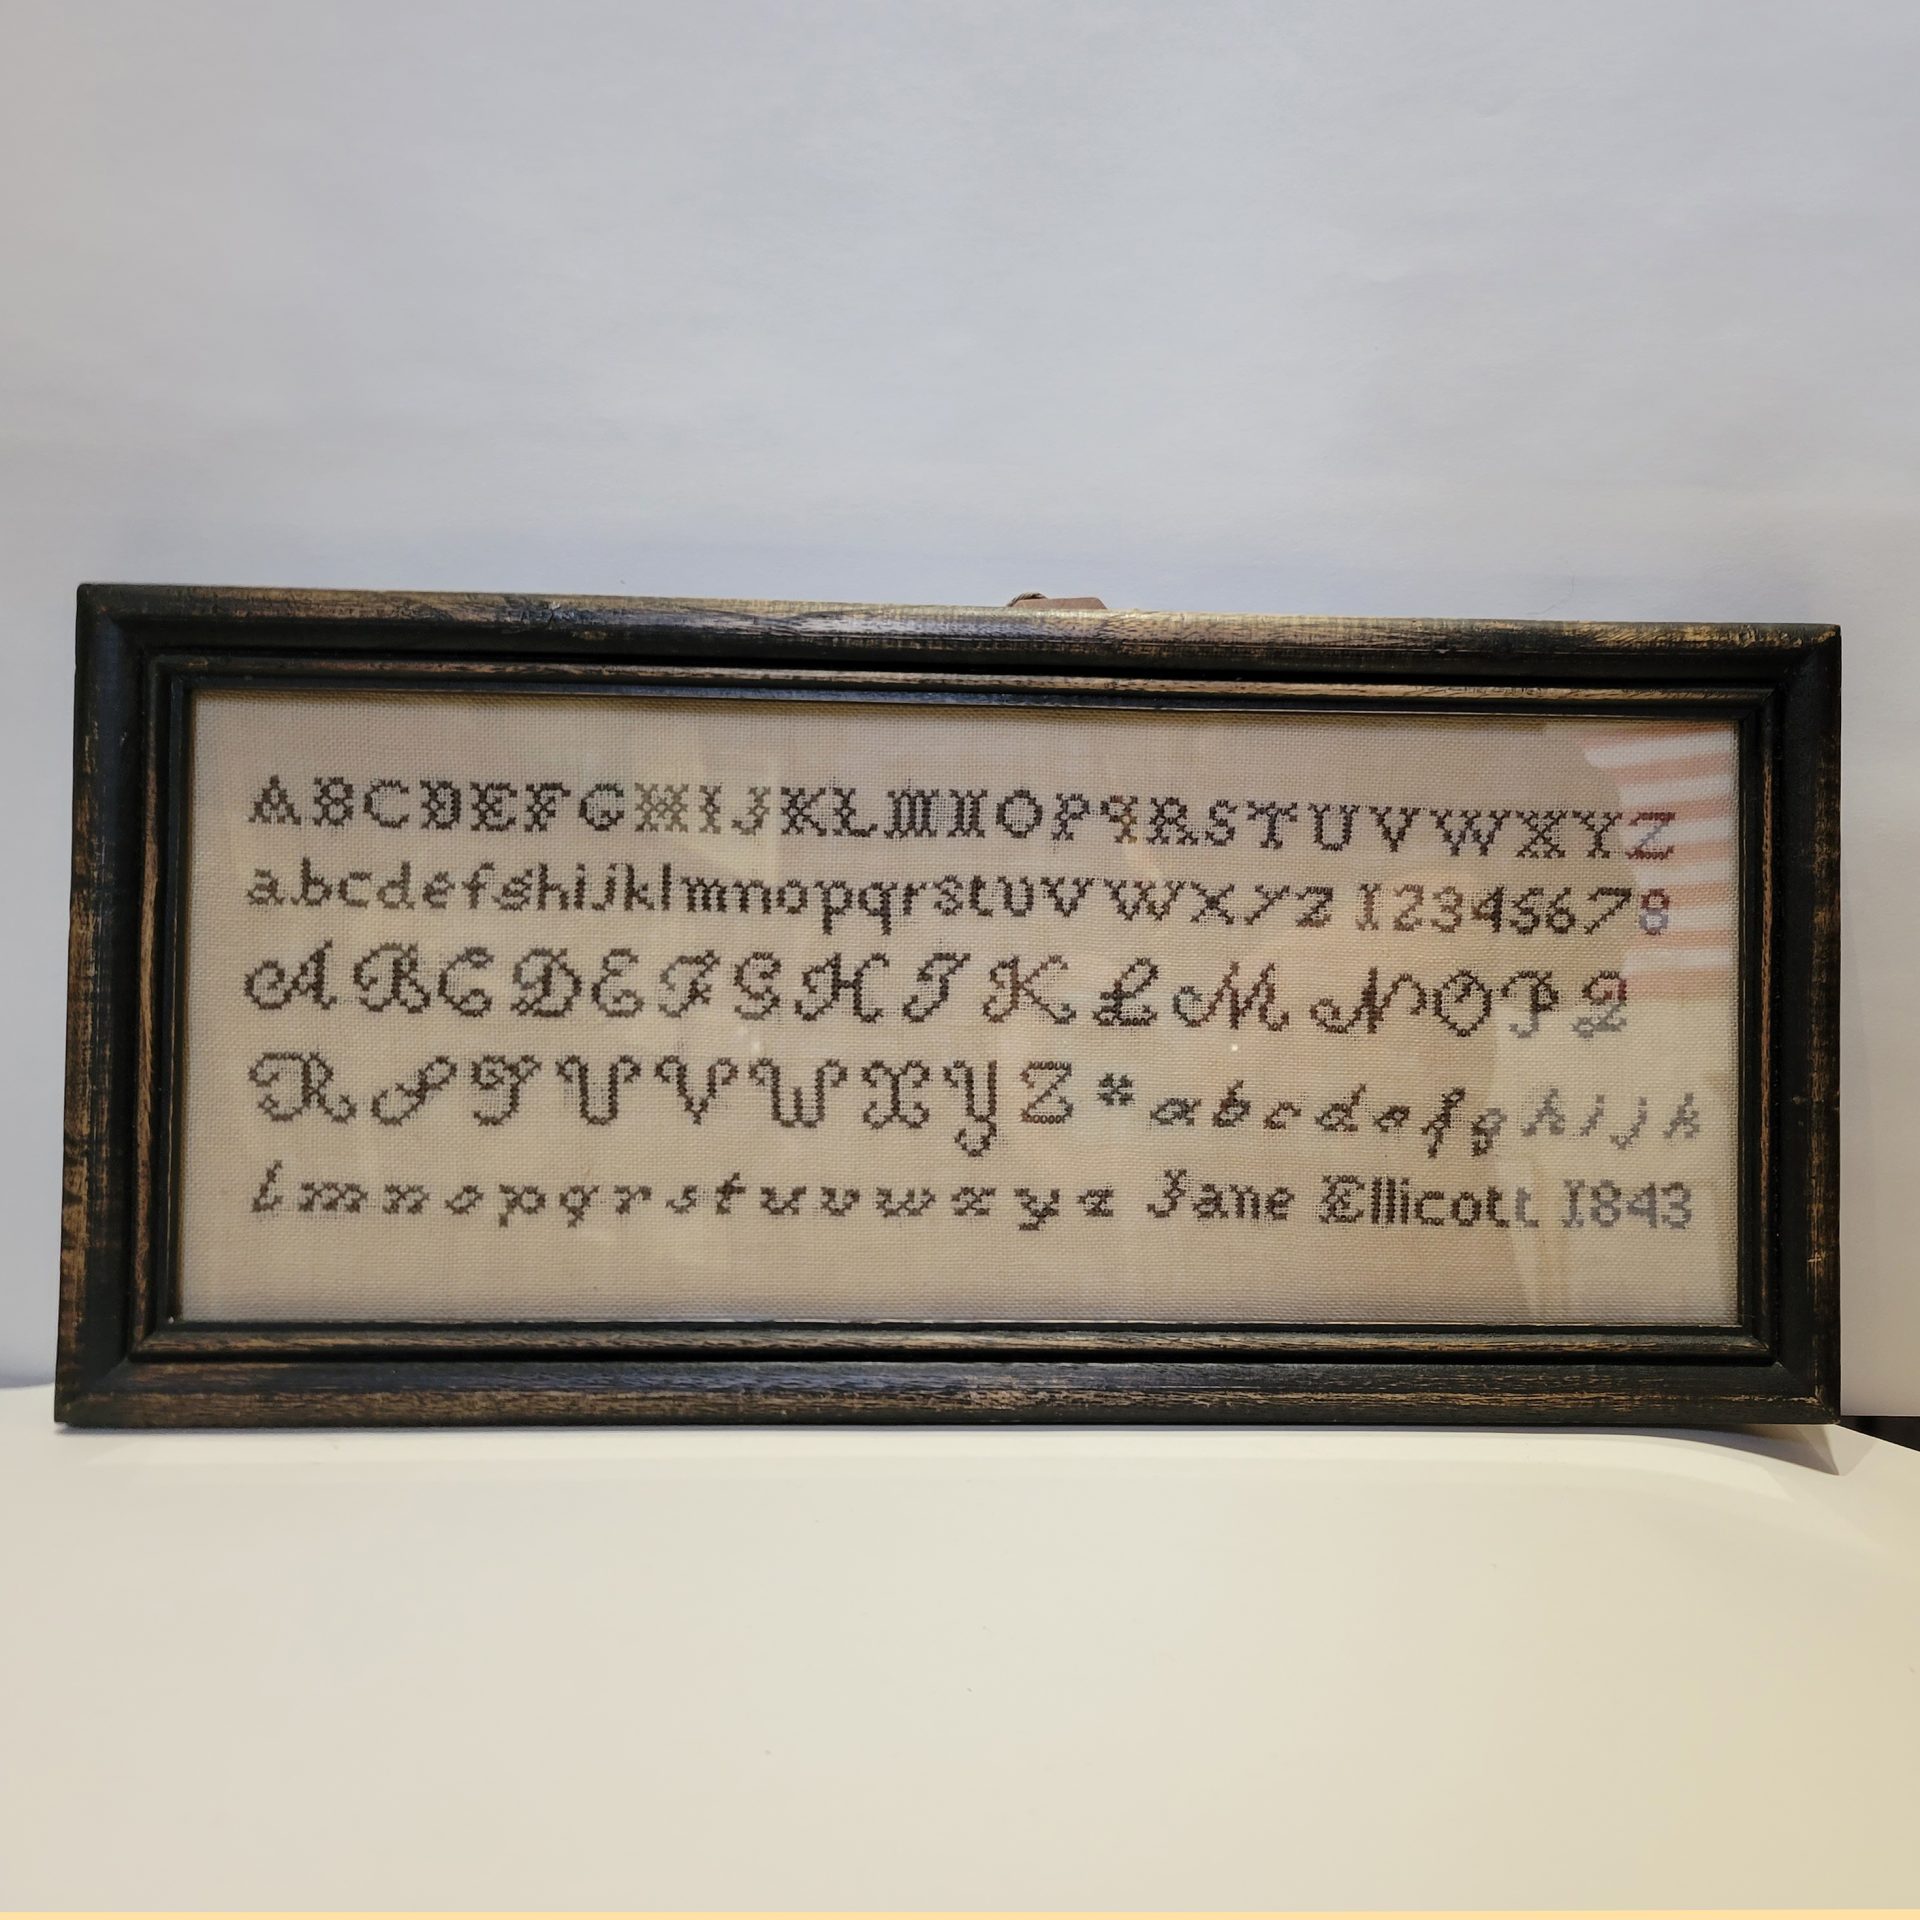 ABCDEFGHIJKLMNOPqRSTUVWXYZ
abcdefghijklmnopqrstuvwxyz 12345678
ABCDEFGHIKLMNOPQ
RSTUVWXYZ * abcdefghijk
lmnopqrstuvwxyz Jane Ellicott 1843